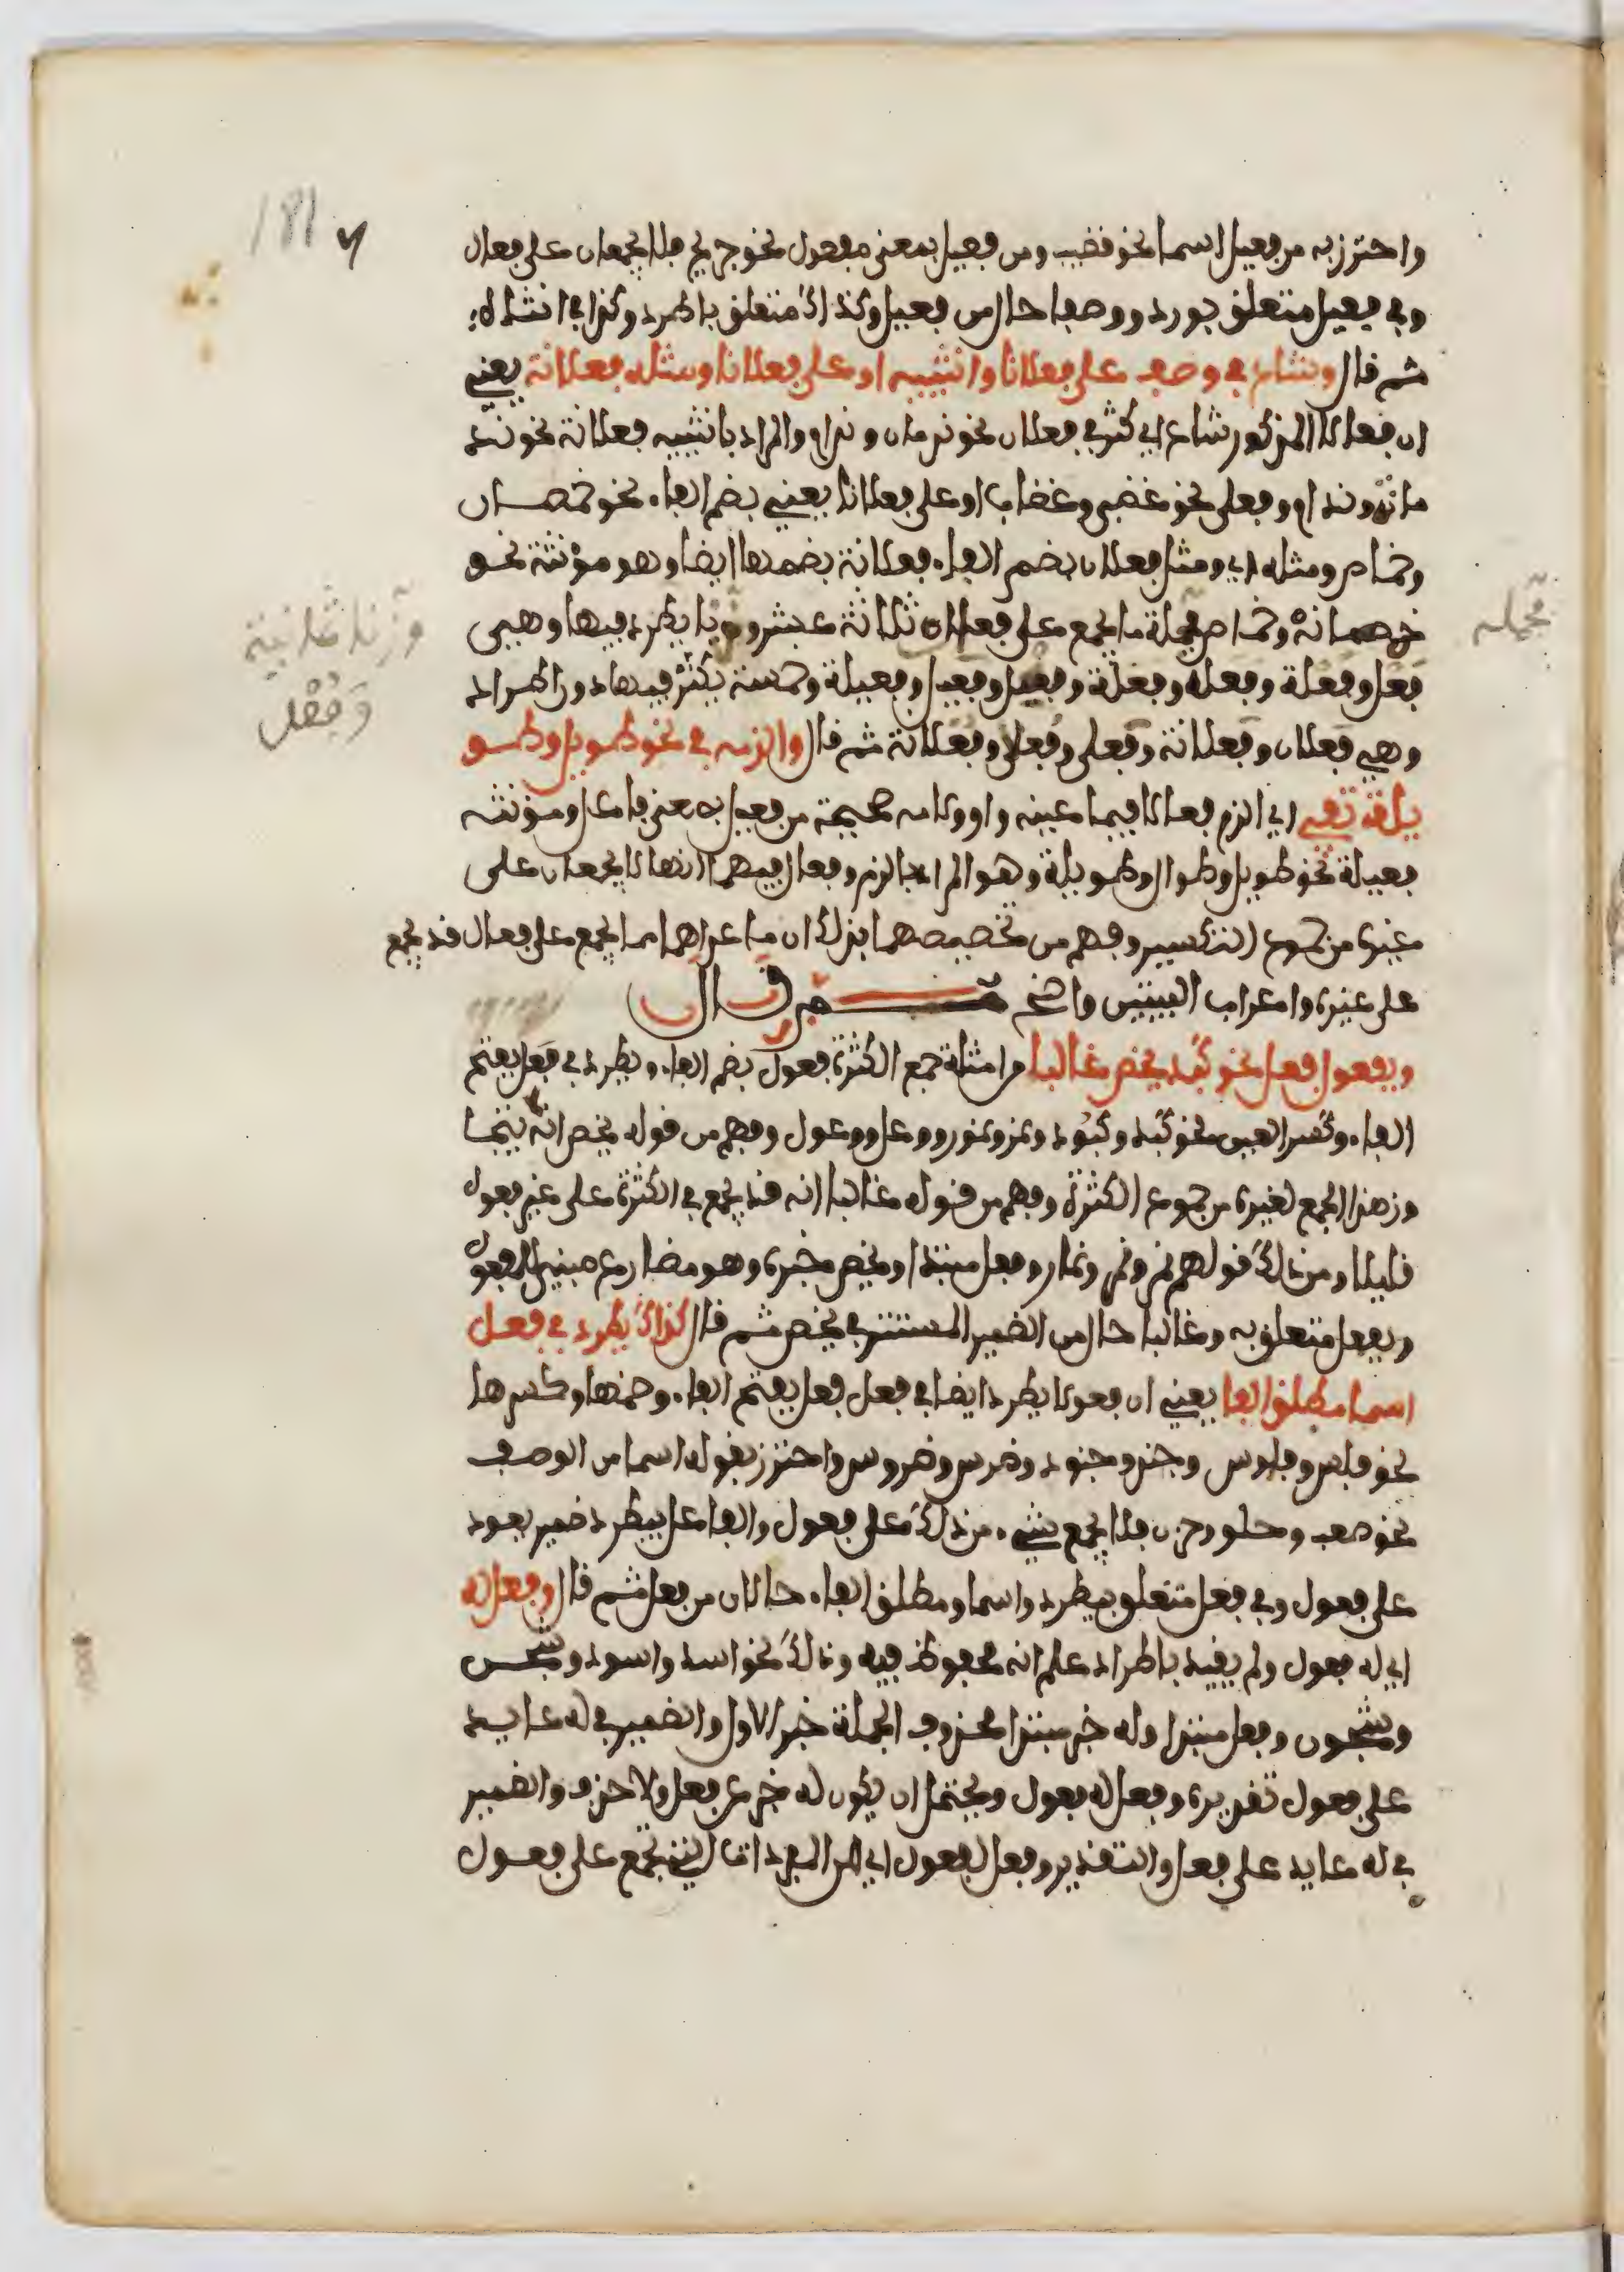 واحترز به من فعيل اسما نحو قضيب ومن فعيل بمعنى مفعول نحو جريح فلا يجمعان على فعال
وفي فعيل متعلق بورد ووصفا حال من فعيل وكذاك متعلق باطرد وكذا في انثاه
ثم قال وشاع في وصف على فعلانا وانثييه او على فعلانا ومثله فعلانة يعني
ان فعالا المذكور شاع اي كثر في فعلان نحو ندمان وندام والمراد بانثييه فعلانة نحو ند
مانة وندام وفعلى نحو غضبى وغضاب او على فعلانا يعني بضم الفاء نحو خمصان
وخماص ومثله اي ومثل فعلان بضم الفاء فعلانة بضمها ايضا وهو مؤنثه نحو
خمصانة وخماص فجملة ما يجمع على فعال ثلاثة عشر وزنا يطرد فيها وهي
فعل وفعلة وفعل وفعلة وفعل وفعيل وفعيلة وخمسة يكثر فيها دون اطراد
وهي فعلان وفعلانة وفعلى وفعلان وفعلانة ثم قال والزمه في نحو طويل وطو
يلة تفي اي الزم فعالا فيما عينه واو ولامه صحيحة من فعيل بمعنى فاعل ومؤنثه
فعيلة نحو طويل وطوال وطويلة وهو المراد بالزم وفعال فيهما انهما لا يجمعان على
غيره من جموع التكسير وفهم من تخصيصهما بذلك ان ما عداهما مما يجمع على فعال قد يجمع
على غيره واعراب البيتين واضح ثم قال
وبفعول فعل نحو كبد يخص غالبا من امثلة جمع الكثرة فعول بضم الفاء ويطرد في فعل بفتح
الفاء وكسر العين نحو كبد وكبود ونمر ونمور ووعل ووعول وفهم من قوله يخص انه لا يتجا
وز هذا الجمع لغيره من جموع الكثرة وفهم من قوله غالبا انه قد يجمع في الكثرة على غير فعول
قليلا ومن ذلك قولهم نمر ونمر ونمار وفعل مبتدا ويخص خبره وهو مضارع مبني للمفعول
وبفعول متعلق به وغالبا حال من الضمير المستتر في يخص ثم قال كذاك يطرد في فعل
اسما مطلق الفا يعني ان فعولا يطرد ايضا في فعل فعل بفتح الفاء وضمها وكسرها
نحو فلس وفلوس وجند وجنود وضرس وضروس واحترز بقوله اسما من الوصف
نحو صعب وحلو فلا يجمع شيء من ذلك على فعول والفاعل بيطرد ضمير يعود
على فعول وفي فعل متعلق بيطرد واسما ومطلق الفاء حالان من فعل ثم قال وفعل له
اي له فعول ولم يقيد باطراد علم انه محفوظ فيه وذلك نحو اسد واسود وشجن
وشجون وفعل مبتدا وله خبر مبتدا محذوف الجملة خبر الاول والضمير في له عايد
على فعول تقديره وفعل له فعول ويحتمل ان يكون له خبر عن فعل ولا حذف والضمير
في له عايد على فعل والتقدير وفعل لفعول اي من المفردات التي تجمع على فعول
فجملة
وزنا ثمانية
وفعل